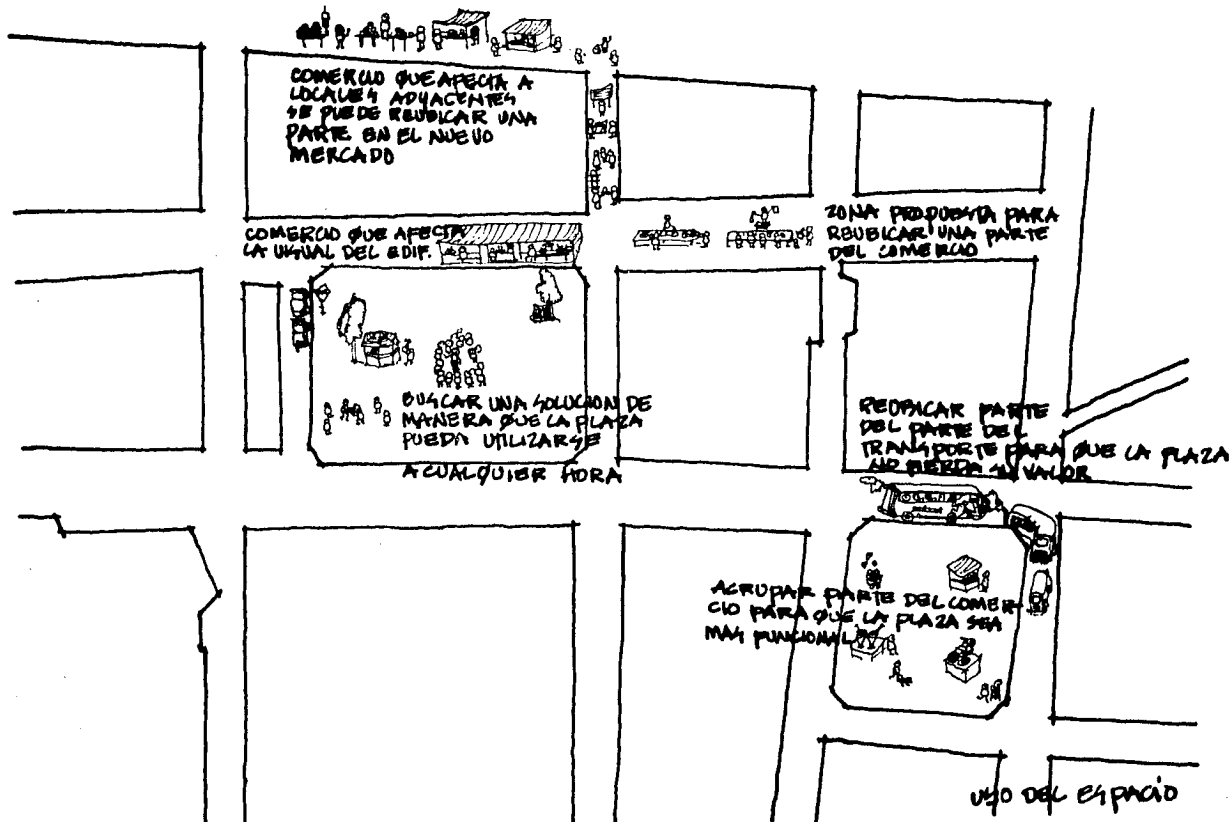 COMERCIO QUE AFECTA A
LOCALES ADYACENTES
SE PUEDE REUBICAR UNA
PARTE EN EL NUEVO
MERCADO
COMERCIO QUE AFECTA
LA VISUAL DEL EDIF.
ZONA PROPUESTA PARA
REUBICAR UNA PARTE
DEL COMERCIO
BUSCAR UNA SOLUCION DE
MANERA QUE LA PLAZA
PUEDA UTILIZARSE
A CUALQUIER HORA
REUBICAR PARTE
DEL PARTE DEL
TRANSPORTE PARA QUE LA PLAZA
NO PIERDA SU VALOR
AGRUPAR PARTE DEL COMER-
CIO PARA QUE LA PLAZA SEA
MAS FUNCIONAL
USO DEL ESPACIO